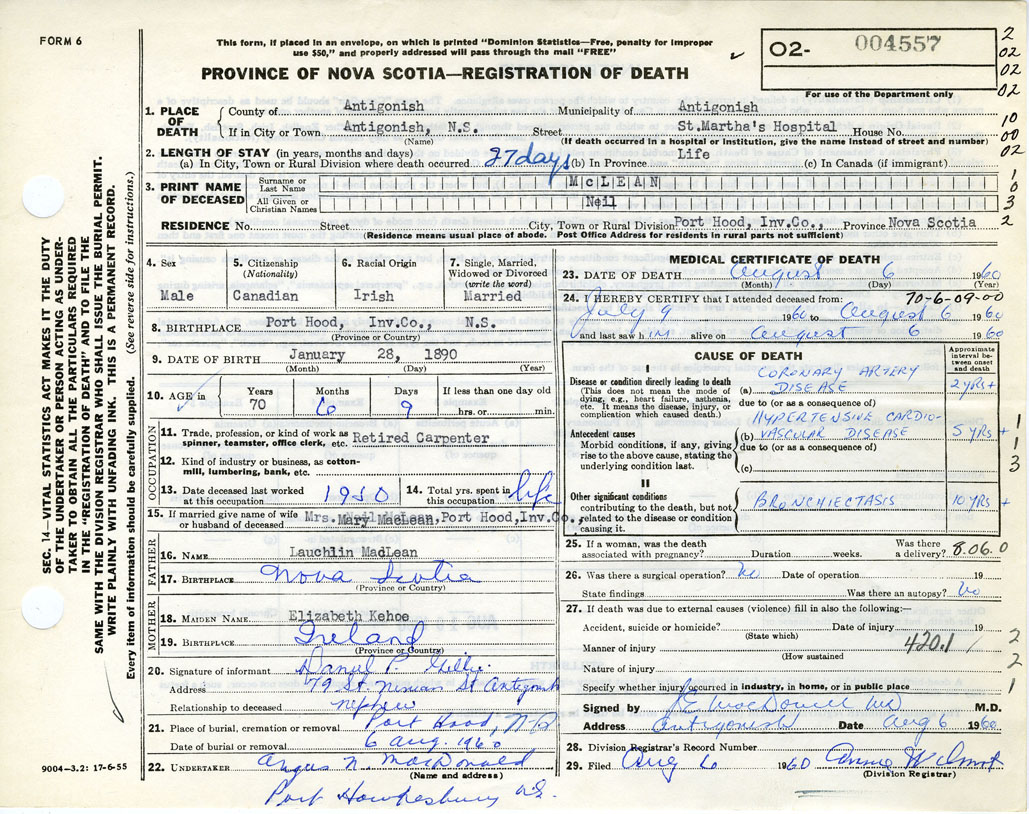 FORM 6
This form, if placed in an envelope, on which is printed "Dominion Statistics—Free, penalty for improper
use $50," and properly addressed will pass through the mail "FREE"
PROVINCE OF NOVA SCOTIA—REGISTRATION OF DEATH
O2- 004557
For use of the Department only
2
02
02
02
10
00
02
1
0
3
2
1. PLACE OF DEATH
County of Antigonish Municipality of Antigonish
If in City or Town Antigonish, N.S. Street St.Martha's Hospital House No.
(Name) (If death occurred in a hospital or institution, give the name instead of street and number)
2. LENGTH OF STAY (in years, months and days)
(a) In City, Town or Rural Division where death occurred 27 days (b) In Province Life (c) In Canada (if immigrant)
3. PRINT NAME OF DECEASED
Surname or Last Name McLEAN
All Given or Christian Names Neil
RESIDENCE No. Street City, Town or Rural Division Port Hood, Inv.Co., Province Nova Scotia
(Residence means usual place of abode. Post Office Address for residents in rural parts not sufficient)
SEC. 14—VITAL STATISTICS ACT MAKES IT THE DUTY
OF THE UNDERTAKER OR PERSON ACTING AS UNDER-
TAKER TO OBTAIN ALL THE PARTICULARS REQUIRED
IN THE "REGISTRATION OF DEATH" AND TO FILE THE
SAME WITH THE DIVISION REGISTRAR WHO SHALL ISSUE THE BURIAL PERMIT.
WRITE PLAINLY WITH UNFADING INK. THIS IS A PERMANENT RECORD.
Every item of information should be carefully supplied. (See reverse side for instructions.)
4. Sex Male
5. Citizenship (Nationality) Canadian
6. Racial Origin Irish
7. Single, Married, Widowed or Divorced (write the word) Married
8. BIRTHPLACE Port Hood, Inv.Co., N.S.
(Province or Country)
9. DATE OF BIRTH January 28, 1890
(Month) (Day) (Year)
10. AGE in Years 70 Months 6 Days 9 If less than one day old hrs. or min.
OCCUPATION
11. Trade, profession, or kind of work as spinner, teamster, office clerk, etc. Retired Carpenter
12. Kind of industry or business, as cotton-mill, lumbering, bank, etc.
13. Date deceased last worked at this occupation 1950
14. Total yrs. spent in this occupation life
15. If married give name of wife or husband of deceased Mrs. Mary MacLean, Port Hood, Inv.Co.,
FATHER
16. NAME Lauchlin MacLean
17. BIRTHPLACE Nova Scotia
(Province or Country)
MOTHER
18. MAIDEN NAME Elizabeth Kehoe
19. BIRTHPLACE Ireland
(Province or Country)
20. Signature of informant Daniel P. Gillis
Address 79 St. Ninian St Antigonish
Relationship to deceased nephew
21. Place of burial, cremation or removal Port Hood, N.S.
Date of burial or removal 6 Aug. 1960
22. UNDERTAKER Angus N. MacDonald
(Name and address)
Port Hawkesbury N.S.
9004—3.2: 17-6-55
MEDICAL CERTIFICATE OF DEATH
23. DATE OF DEATH August 6 1960
(Month) (Day) (Year)
24. I HEREBY CERTIFY that I attended deceased from: 70-6-09-00
July 9 1960 to August 6 1960
and last saw h im alive on August 6 1960
CAUSE OF DEATH
Approximate interval between onset and death
I
Disease or condition directly leading to death
(This does not mean the mode of dying, e.g., heart failure, asthenia, etc. It means the disease, injury, or complication which caused death.)
(a) CORONARY ARTERY DISEASE 2 yrs +
due to (or as a consequence of)
Antecedent causes
Morbid conditions, if any, giving rise to the above cause, stating the underlying condition last.
(b) HYPERTENSIVE CARDIO-VASCULAR DISEASE 5 yrs +
due to (or as a consequence of)
(c)
II
Other significant conditions
contributing to the death, but not related to the disease or condition causing it.
BRONCHIECTASIS 10 yrs +
1
1
3
25. If a woman, was the death associated with pregnancy? Duration weeks. Was there a delivery? 8.06.0
26. Was there a surgical operation? No Date of operation 19
State findings Was there an autopsy? No
27. If death was due to external causes (violence) fill in also the following:—
Accident, suicide or homicide? Date of injury 19
(State which)
Manner of injury 420.1
(How sustained
Nature of injury
2
2
1
Specify whether injury occurred in industry, in home, or in public place
Signed by J E MacDonell MD M.D.
Address Antigonish Date Aug 6 1960
28. Division Registrar's Record Number
29. Filed Aug 6 1960
(Division Registrar)